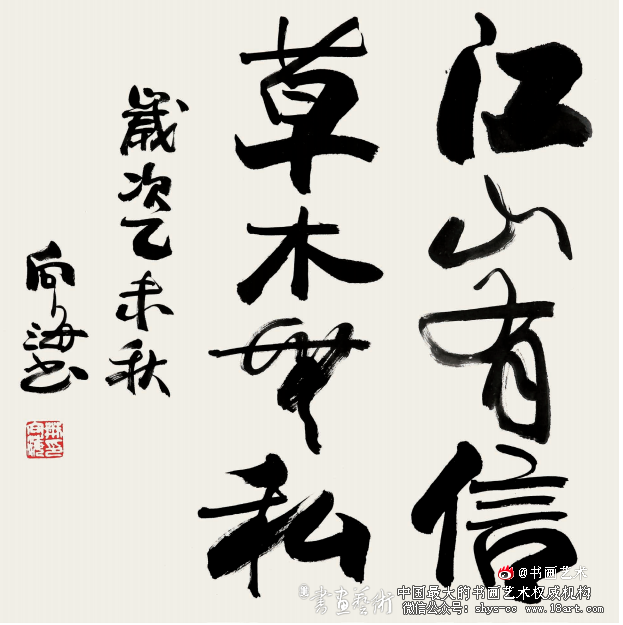 江山有信
草木無私
歲次乙未秋
向海書
@书画艺术
書畫藝術
中国最大的书画艺术权威机构
微信公众号：shys-cc www.18art.com